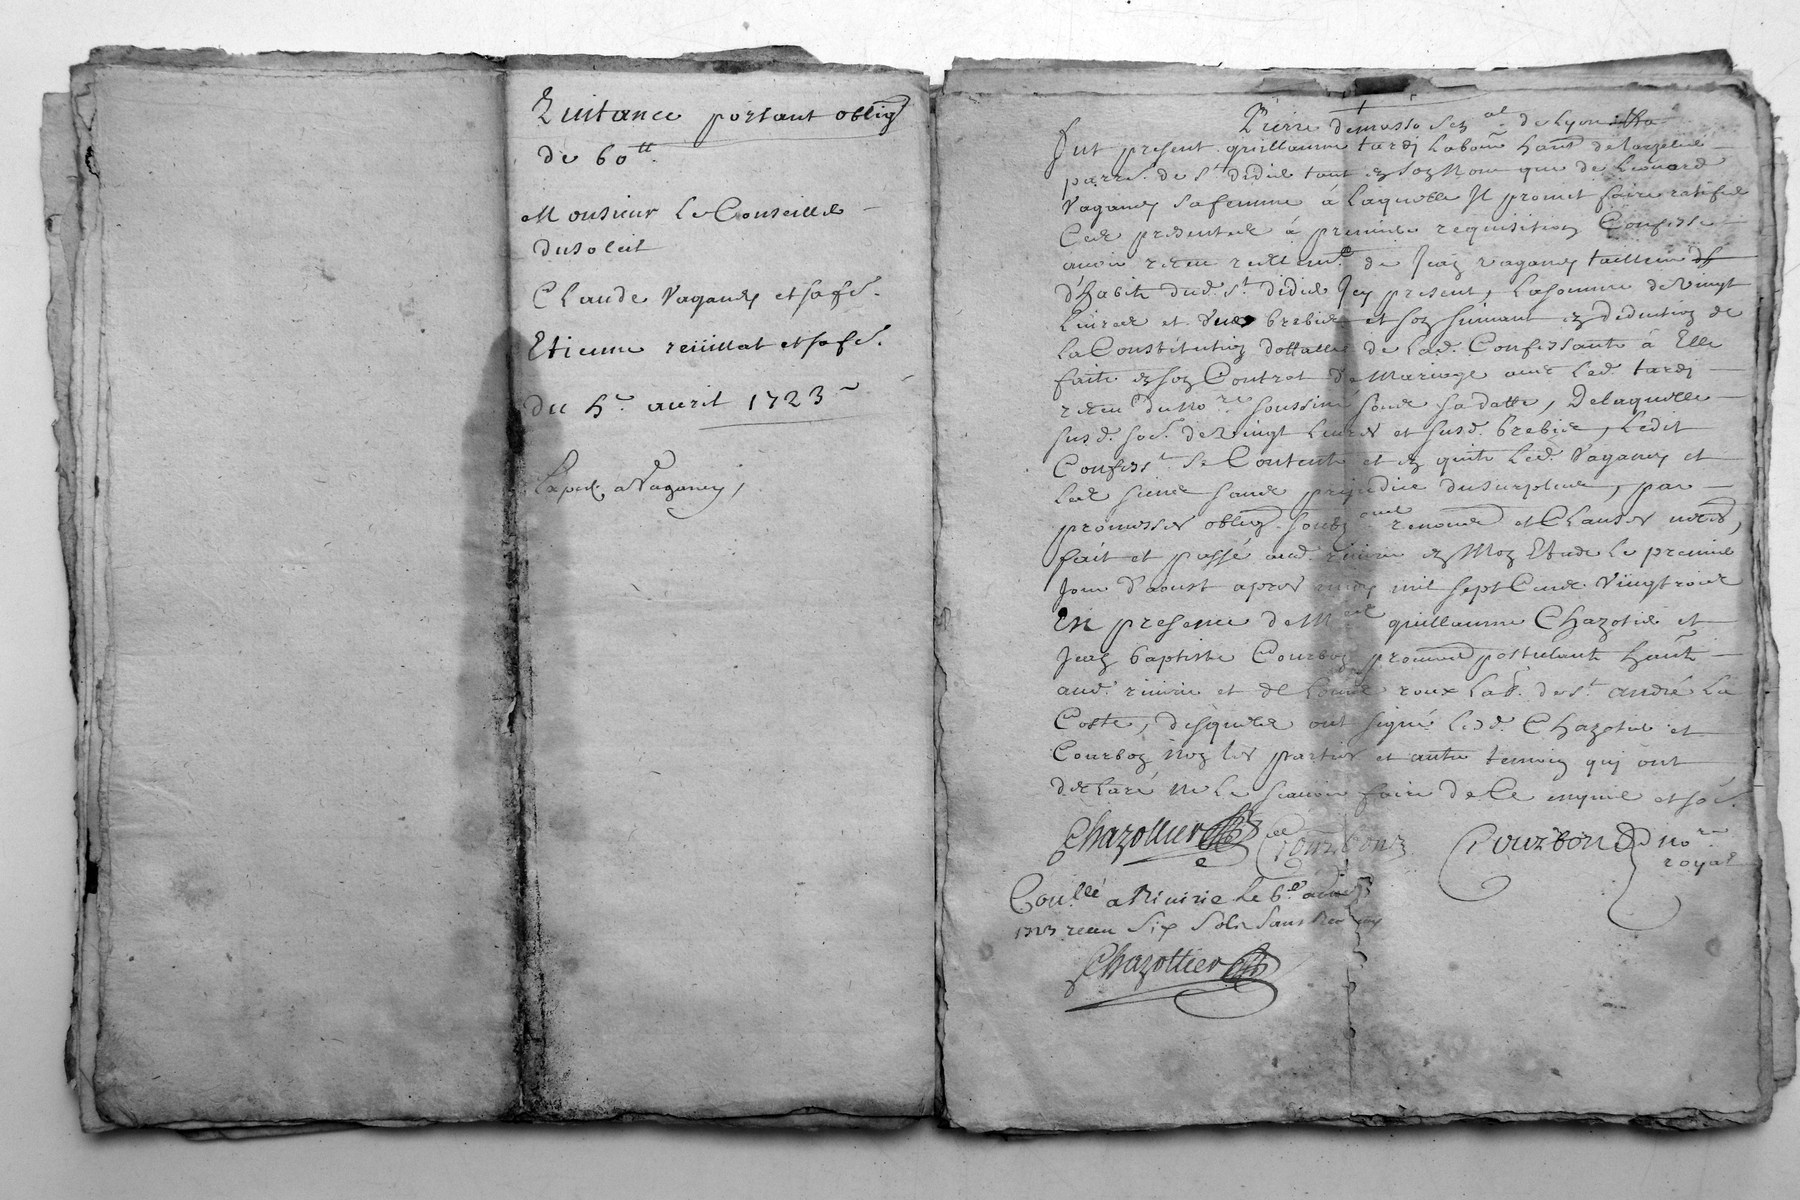 Quitance portant oblig
de 60tt
Monsieur Le Conseiller
dusoleil
Claude Vaganey et sa fe.
Etienne reüillat et sa fe.
du 5e avril 1723
a Vaganey
Pierre de Lyon
fut present guillaume tardj Labour habt de
parre. de st didier tant en son Nom que de
Vaganey sa femme à Laquelle Jl promet faire ratifier
Ces presentes à premiere requisition Confesse
avoir receu reellemt. de Jean vaganey tailleur
d'habits dud. st didier Jcy present, La somme de vingt
Livres et Une brebis et son suivant en deduction de
La Constitution dottalle de Lad. Confessante à Elle
faite en son Contrat de Mariage avec Led. tardj
receu du nore soussigné sous sa datte, De laquelle
susd. some. de vingt Livres et susd. brebis, Ledit
Confesst. se Contente et en quitte Led. Vaganey et
Les siens sans prejudice du surplus, par
promesses oblig. renond et Clauses necess,
fait et passé aud. riuirie en Mon Etude le premier
Jour d'aoust apres midy mil sept Cents Vingt trois
En presence de guillaume Chazotier et
Jean baptiste Courbon procureurs postulants habt
aud. riuirie et de Louis roux Lab. de st andré La
Coste, desquels ont signé Lesd. Chazotier et
Courbon Non les parties et autre temoin quj ont
declaré ne Le scauoir faire de Ce enquis et some.
Chazottier Courbon Courbon nore
royal
Conllé a Riuirie Le 6e
1723 receu Six Sols
Chazottier